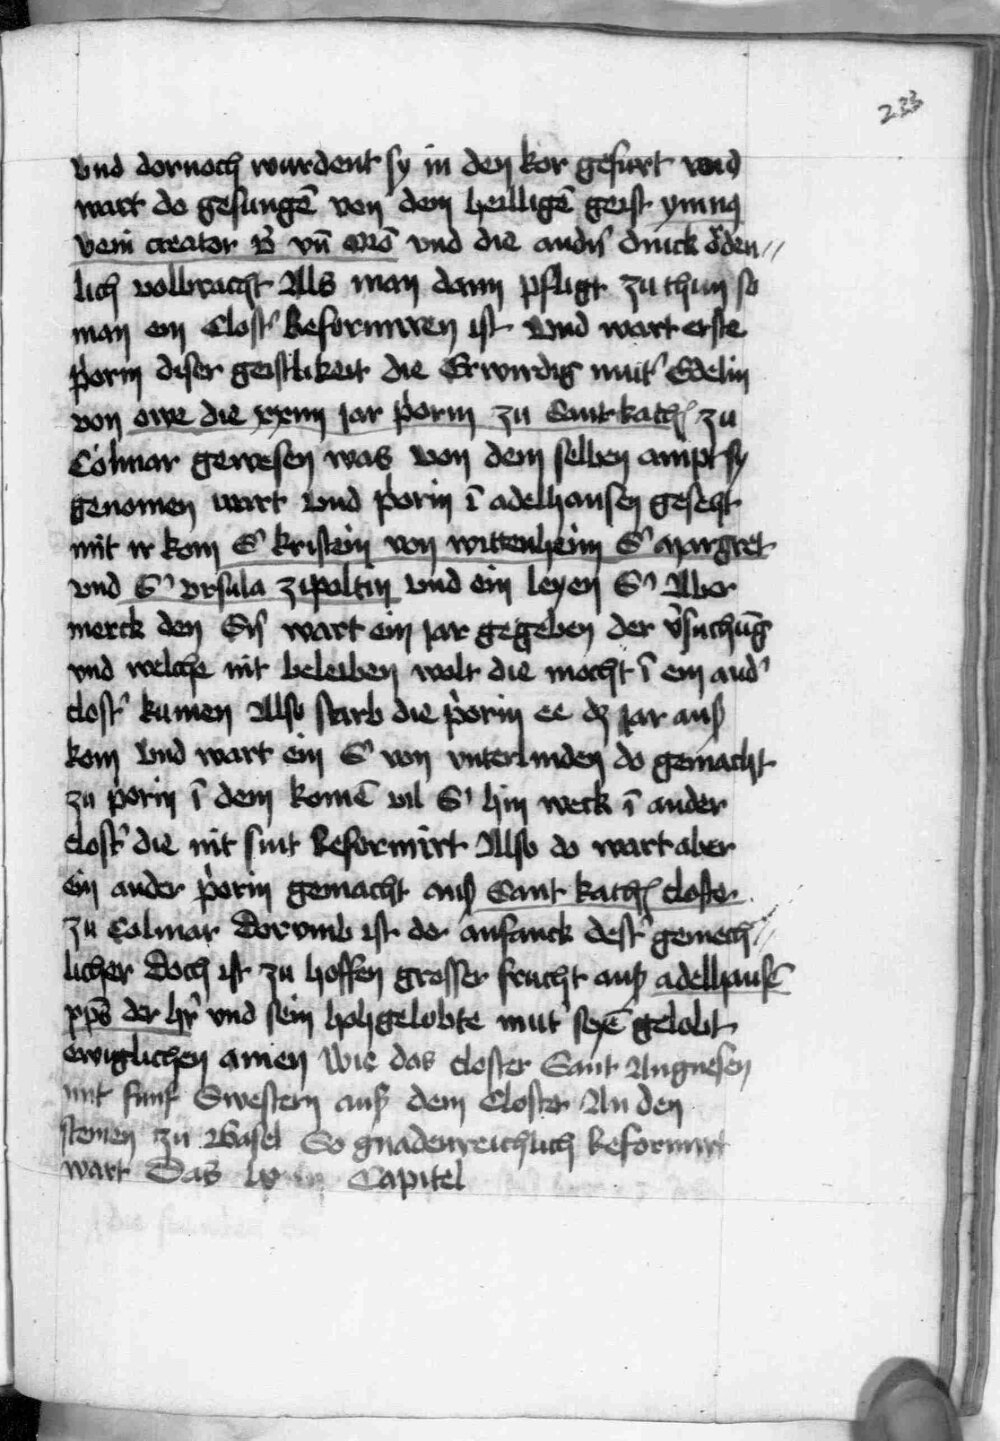 233
vnd dornoch wurdent sy in den kor gefurt vnd
wart do gesungē von dem heilligē geist ymnꝯ
veni creator v̄ vn̄ orō vnd die andn̄ dinck ordēn//
lich volbracht Als man dann pfligt zu thun so
man ein Clost' Reformiren ist Vnd wart erste
p'orin diser geistlikeit die Erwirdig mut' Edelin
von owe die xxiiij jar p'orin zu Sant kath' zu
Colmar gewesen was von dem selben ampt sy
genomen wart vnd p'orin ī adelhausen geseczt
mit ir kom S' kristein von wittenheim S' Margret
vnd S' vrsula zipoltin vnd ein leyen S' Aber
merck den Sn' wart ein jar gegeben der v'suchūg
vnd welche nit beleiben wolt die mocht ī ein and'
clost' kumen Also starb die p'orin ee dz jar auß
kom Vnd wart ein S' von vnterlinden do gemacht
zu p'orin ī dem komē vil S' hin weck ī ander
clost' die nit sint Reformirt Also do wart aber
ein ander p'orin gemacht auß Sant kath' closter
zu Colmar Dorvmb ist der anfanck dest' gemech//
licher Doch ist zu hoffen grosser frucht auß adelhausē
xp̄s der hr' vnd sein hohgelobte mut' seyē gelobt
ewiglichen amen Wie das closter Sant Angnesen
mit funf Swestern auß dem Closter An den
steinen zu Basel So gnadenreichlich Reformirt
wart Das Capitel